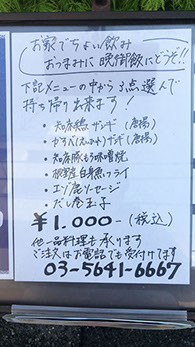 お家でちょい飲み
おつまみに 晩御飯にどうぞ!!
下記メニューの中から3点選んで
持ち帰り出来ます!
・知床鶏ザンギ(唐揚)
・かすべ(えいひれ)ザンギ(唐揚)
・知床豚もろ味噌焼
・根室産白身魚フライ
・エゾ鹿ソーセージ
・だし巻玉子
¥1.000-(税込)
他一品料理も承ります
ご注文はお電話でも受付けてます
03-5641-6667